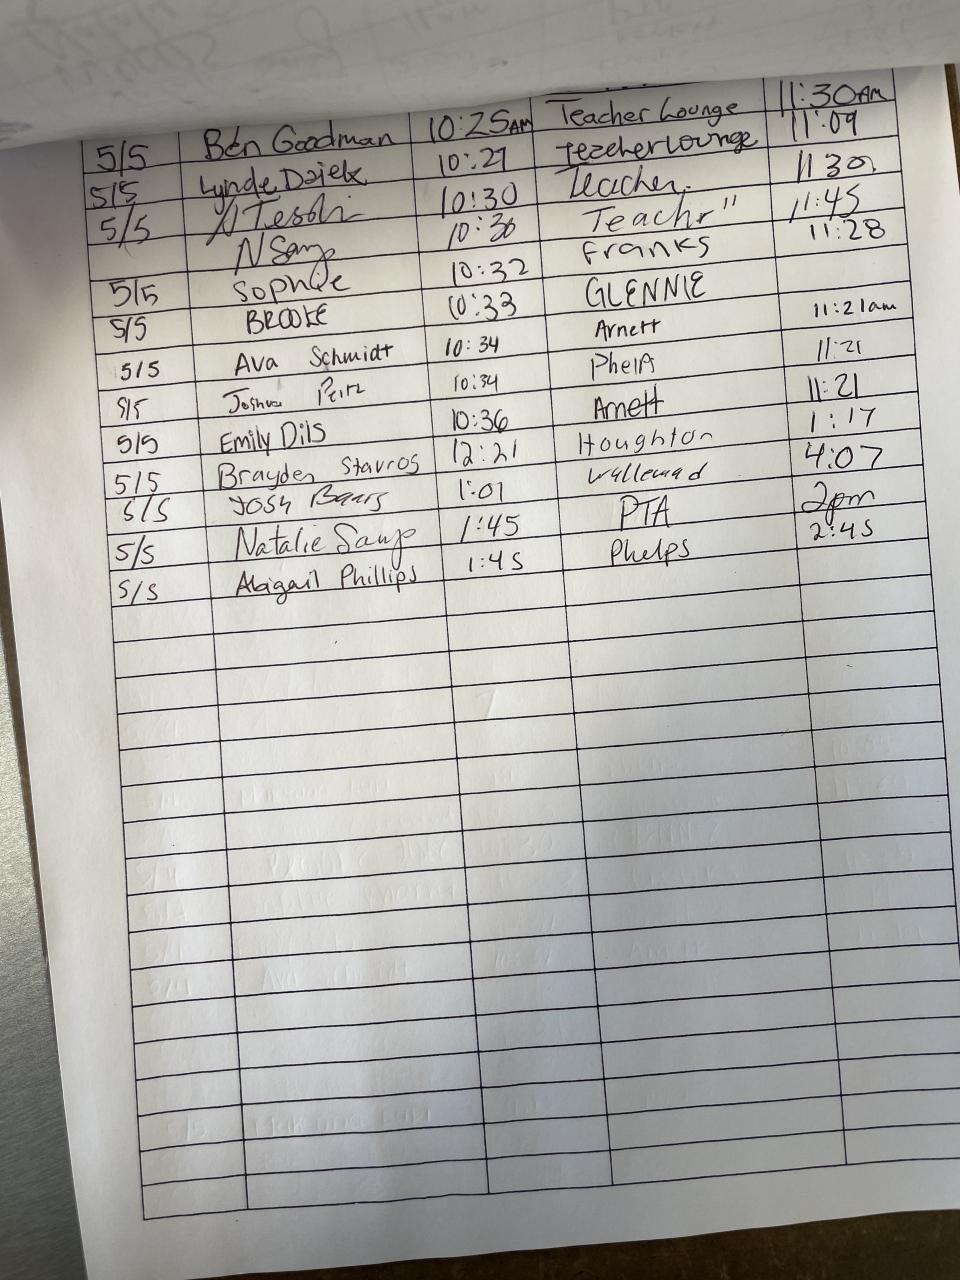 5/5 Ben Goodman 10:25AM Teacher Lounge 11:30AM
5/5 Lynde 10:27 Teacher Lounge 11:09
5/5 10:30 Teacher 11 30
N Sanyo 10:30 Teachr " 11:45
5/5 Sophie 10:32 Franks 11:28
5/5 BROOKE 10:33 GLENNIE
5/5 Ava Schmidt 10:34 Arnett 11:21am
5/5 Joshua 10:34 11:21
5/5 Emily Dils 10:36 Arnett 11:21
5/5 Brayden Stavros 12:21 Houghton 1:17
5/5 Josh 1:01 4:07
5/5 Natalie Sanyo 1:45 PTA 2pm
5/5 Abigail Phillips 1:45 Phelps 2:45